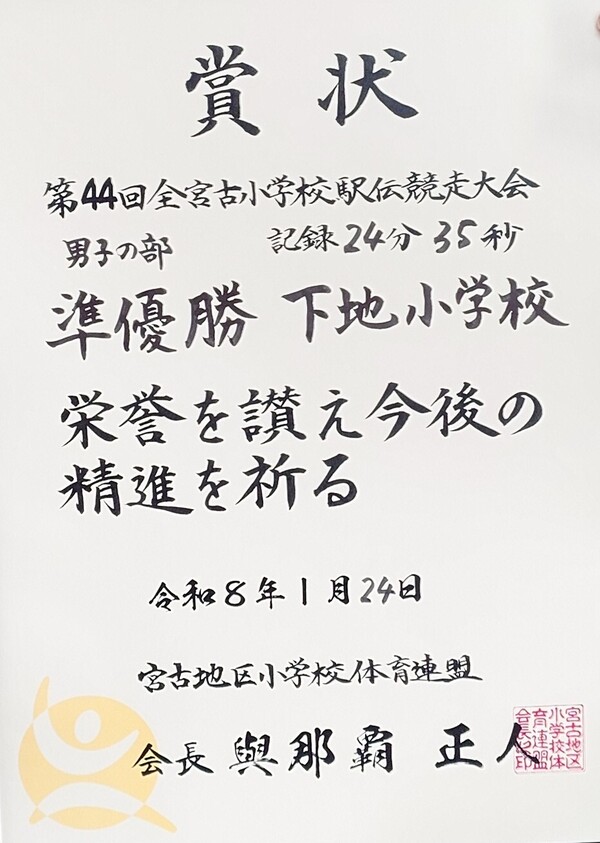 賞状
第44回全宮古小学校駅伝競走大会
男子の部 記録24分35秒
準優勝 下地小学校
栄誉を讃え今後の
精進を祈る
令和8年1月24日
宮古地区小学校体育連盟
会長 與那覇 正人
宮古地区
小学校体
育連盟
会長之印